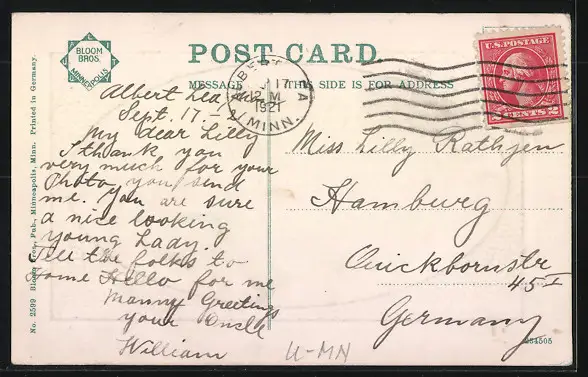 BLOOM
BROS.
MINNEAPOLIS
POST CARD
MESSAGE
THIS SIDE IS FOR ADDRESS
ALBERT LEA
MINN.
17
12 M
1921
U.S. POSTAGE
2 CENTS 2
Albert Lea
Sept. 17. - 21
My dear Lilly
I thank you
very much for your
Photo you send
me. you are sure
a nice looking
young Lady.
Tell the folks to
Home Hello for me
Manny Greetings
your Onkle
William
Miss Lilly Rathjen
Hamburg
Quickbornstr
45 I
Germany
U-MN
No. 2599 Bloom Bros., Pub., Minneapolis, Minn. Printed in Germany.